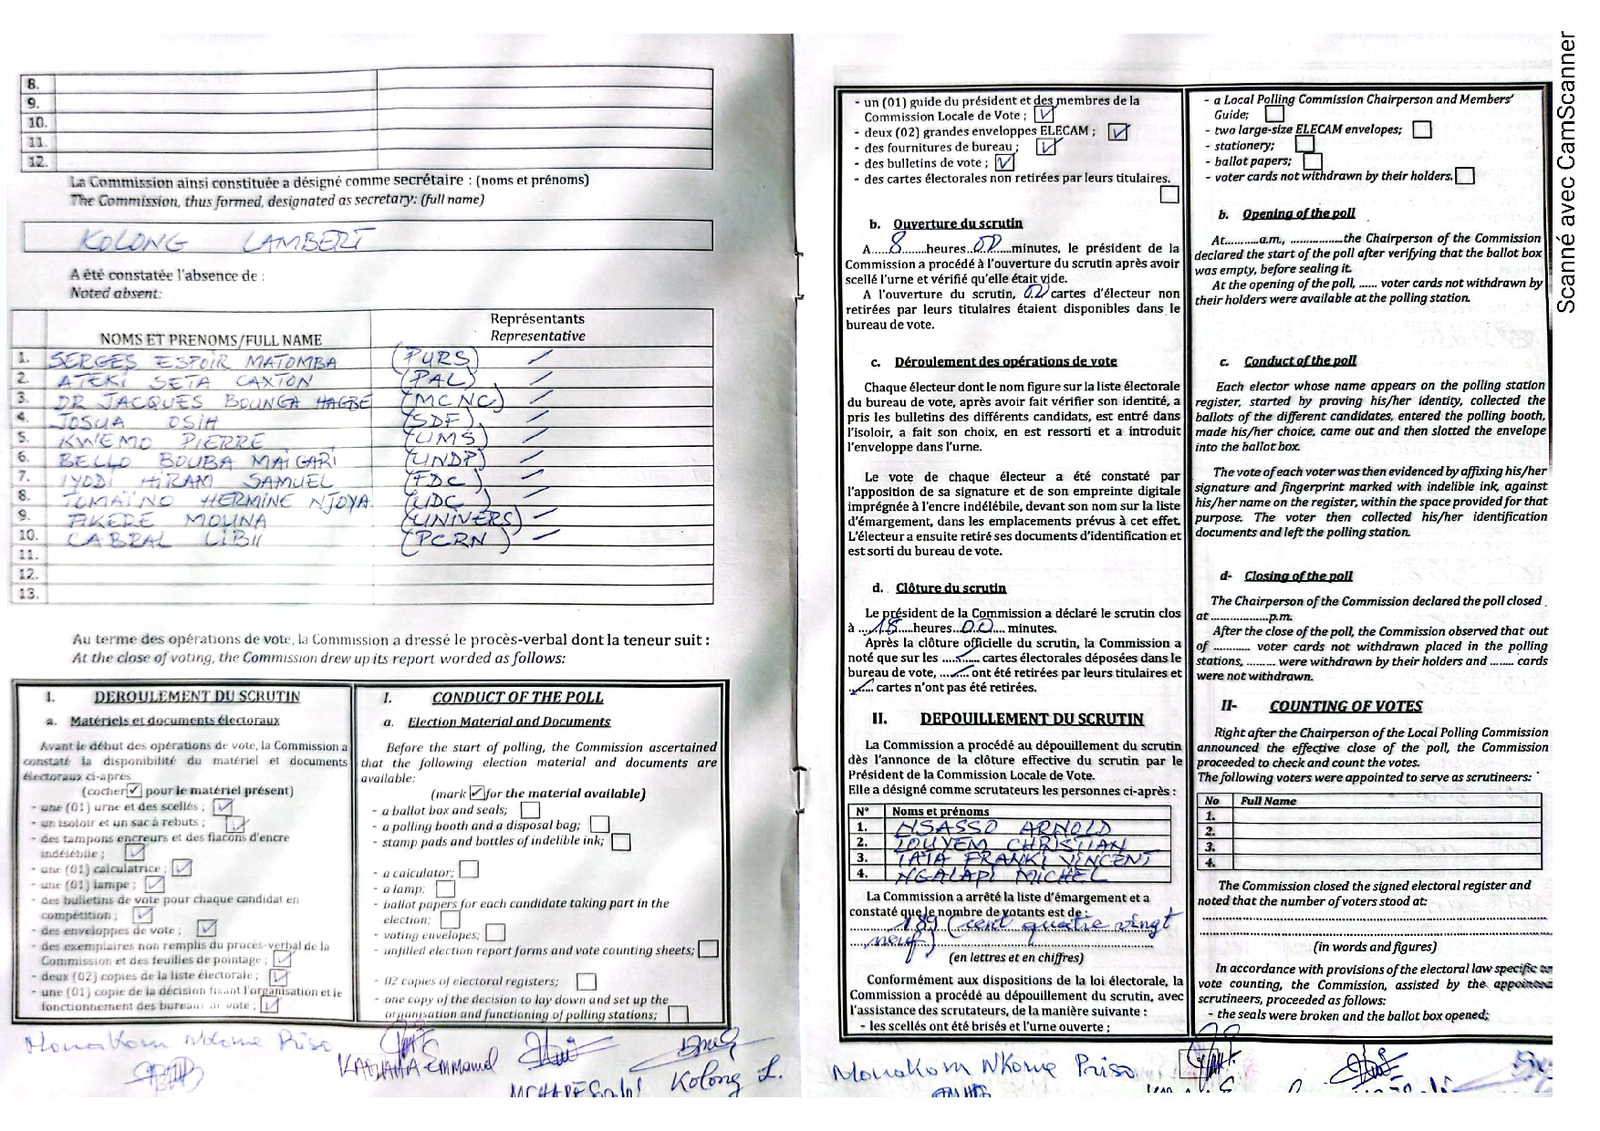 8.
9.
10.
11.
12.
La Commission ainsi constituée a désigné comme secrétaire : (noms et prénoms)
The Commission, thus formed, designated as secretary: (full name)
KOLONG LAMBERT
A été constatée l'absence de :
Noted absent:
NOMS ET PRENOMS/FULL NAME
Représentants
Representative
1. SERGES ESPOIR MATOMBA (PURS)
2. ATEKI SETA CAXTON (PAL)
3. DR JACQUES BOUNGA HAGBE (MCNC)
4. JOSUA OSIH (SDF)
5. KWEMO PIERRE (UMS)
6. BELLO BOUBA MAIGARI (UNDP)
7. IYODI HIRAM SAMUEL (FDC)
8. TOMAINO HERMINE NJOYA (UDC)
9. AKERE MOUNA (UNIVERS)
10. CABRAL LIBII (PCRN)
11.
12.
13.
Au terme des opérations de vote, la Commission a dressé le procès-verbal dont la teneur suit :
At the close of voting, the Commission drew up its report worded as follows:
I. DEROULEMENT DU SCRUTIN
a. Matériels et documents électoraux
Avant le début des opérations de vote, la Commission a
constaté la disponibilité du matériel et documents
électoraux ci-après
(cocher ✓ pour le matériel présent)
- une (01) urne et des scellés ; ✓
- un isoloir et un sac à rebuts ; ✓
- des tampons encreurs et des flacons d'encre
indélébile ; ✓
- une (01) calculatrice ; ✓
- une (01) lampe ; ✓
- des bulletins de vote pour chaque candidat en
compétition ; ✓
- des enveloppes de vote ; ✓
- des exemplaires non remplis du procès-verbal de la
Commission et des feuilles de pointage ; ✓
- deux (02) copies de la liste électorale ; ✓
- une (01) copie de la décision fixant l'organisation et le
fonctionnement des bureaux de vote ; ✓
I. CONDUCT OF THE POLL
a. Election Material and Documents
Before the start of polling, the Commission ascertained
that the following election material and documents are
available:
(mark ✓ for the material available)
- a ballot box and seals;
- a polling booth and a disposal bag;
- stamp pads and bottles of indelible ink;
- a calculator;
- a lamp;
- ballot papers for each candidate taking part in the
election;
- voting envelopes;
- unfilled election report forms and vote counting sheets;
- 02 copies of electoral registers;
- one copy of the decision to lay down and set up the
organisation and functioning of polling stations;
Monakom Nkome Priso
KADJAHA Emmanuel
Kolong L.
- un (01) guide du président et des membres de la
Commission Locale de Vote ; ✓
- deux (02) grandes enveloppes ELECAM ; ✓
- des fournitures de bureau ; ✓
- des bulletins de vote ; ✓
- des cartes électorales non retirées par leurs titulaires.
b. Ouverture du scrutin
A.....8.....heures..00.....minutes, le président de la
Commission a procédé à l'ouverture du scrutin après avoir
scellé l'urne et vérifié qu'elle était vide.
A l'ouverture du scrutin, 02 cartes d'électeur non
retirées par leurs titulaires étaient disponibles dans le
bureau de vote.
c. Déroulement des opérations de vote
Chaque électeur dont le nom figure sur la liste électorale
du bureau de vote, après avoir fait vérifier son identité, a
pris les bulletins des différents candidats, est entré dans
l'isoloir, a fait son choix, en est ressorti et a introduit
l'enveloppe dans l'urne.
Le vote de chaque électeur a été constaté par
l'apposition de sa signature et de son empreinte digitale
imprégnée à l'encre indélébile, devant son nom sur la liste
d'émargement, dans les emplacements prévus à cet effet.
L'électeur a ensuite retiré ses documents d'identification et
est sorti du bureau de vote.
d. Clôture du scrutin
Le président de la Commission a déclaré le scrutin clos
à ....18.....heures...00.... minutes.
Après la clôture officielle du scrutin, la Commission a
noté que sur les ...../..... cartes électorales déposées dans le
bureau de vote, ..../.... ont été retirées par leurs titulaires et
../.... cartes n'ont pas été retirées.
II. DEPOUILLEMENT DU SCRUTIN
La Commission a procédé au dépouillement du scrutin
dès l'annonce de la clôture effective du scrutin par le
Président de la Commission Locale de Vote.
Elle a désigné comme scrutateurs les personnes ci-après :
N° Noms et prénoms
1. NSASSO ARNOLD
2. LOUYEM CHRISTIAN
3. TATA FRANKI VINCENT
4. NGALAPI MICHEL
La Commission a arrêté la liste d'émargement et a
constaté que le nombre de votants est de :
189 (cent quatre vingt
neuf)
(en lettres et en chiffres)
Conformément aux dispositions de la loi électorale, la
Commission a procédé au dépouillement du scrutin, avec
l'assistance des scrutateurs, de la manière suivante :
- les scellés ont été brisés et l'urne ouverte ;
- a Local Polling Commission Chairperson and Members'
Guide;
- two large-size ELECAM envelopes;
- stationery;
- ballot papers;
- voter cards not withdrawn by their holders.
b. Opening of the poll
At..........a.m., .................the Chairperson of the Commission
declared the start of the poll after verifying that the ballot box
was empty, before sealing it.
At the opening of the poll, ...... voter cards not withdrawn by
their holders were available at the polling station.
c. Conduct of the poll
Each elector whose name appears on the polling station
register, started by proving his/her identity, collected the
ballots of the different candidates, entered the polling booth,
made his/her choice, came out and then slotted the envelope
into the ballot box.
The vote of each voter was then evidenced by affixing his/her
signature and fingerprint marked with indelible ink, against
his/her name on the register, within the space provided for that
purpose. The voter then collected his/her identification
documents and left the polling station.
d- Closing of the poll
The Chairperson of the Commission declared the poll closed
at ..................p.m.
After the close of the poll, the Commission observed that out
of ........... voter cards not withdrawn placed in the polling
stations, ......... were withdrawn by their holders and ........ cards
were not withdrawn.
II- COUNTING OF VOTES
Right after the Chairperson of the Local Polling Commission
announced the effective close of the poll, the Commission
proceeded to check and count the votes.
The following voters were appointed to serve as scrutineers:
No Full Name
1.
2.
3.
4.
The Commission closed the signed electoral register and
noted that the number of voters stood at:
(in words and figures)
In accordance with provisions of the electoral law specific to
vote counting, the Commission, assisted by the appointed
scrutineers, proceeded as follows:
- the seals were broken and the ballot box opened;
Monakom Nkome Priso
Scanné avec CamScanner